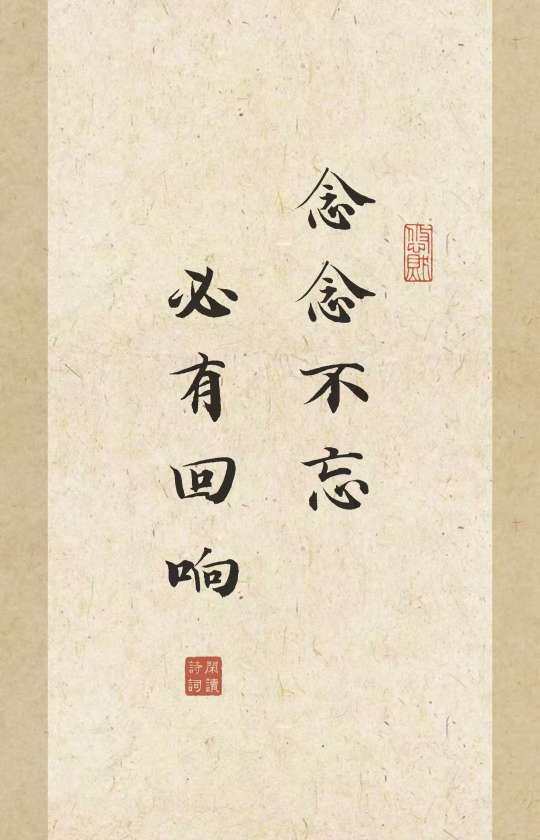 念念不忘
必有回响
閑讀
詩詞